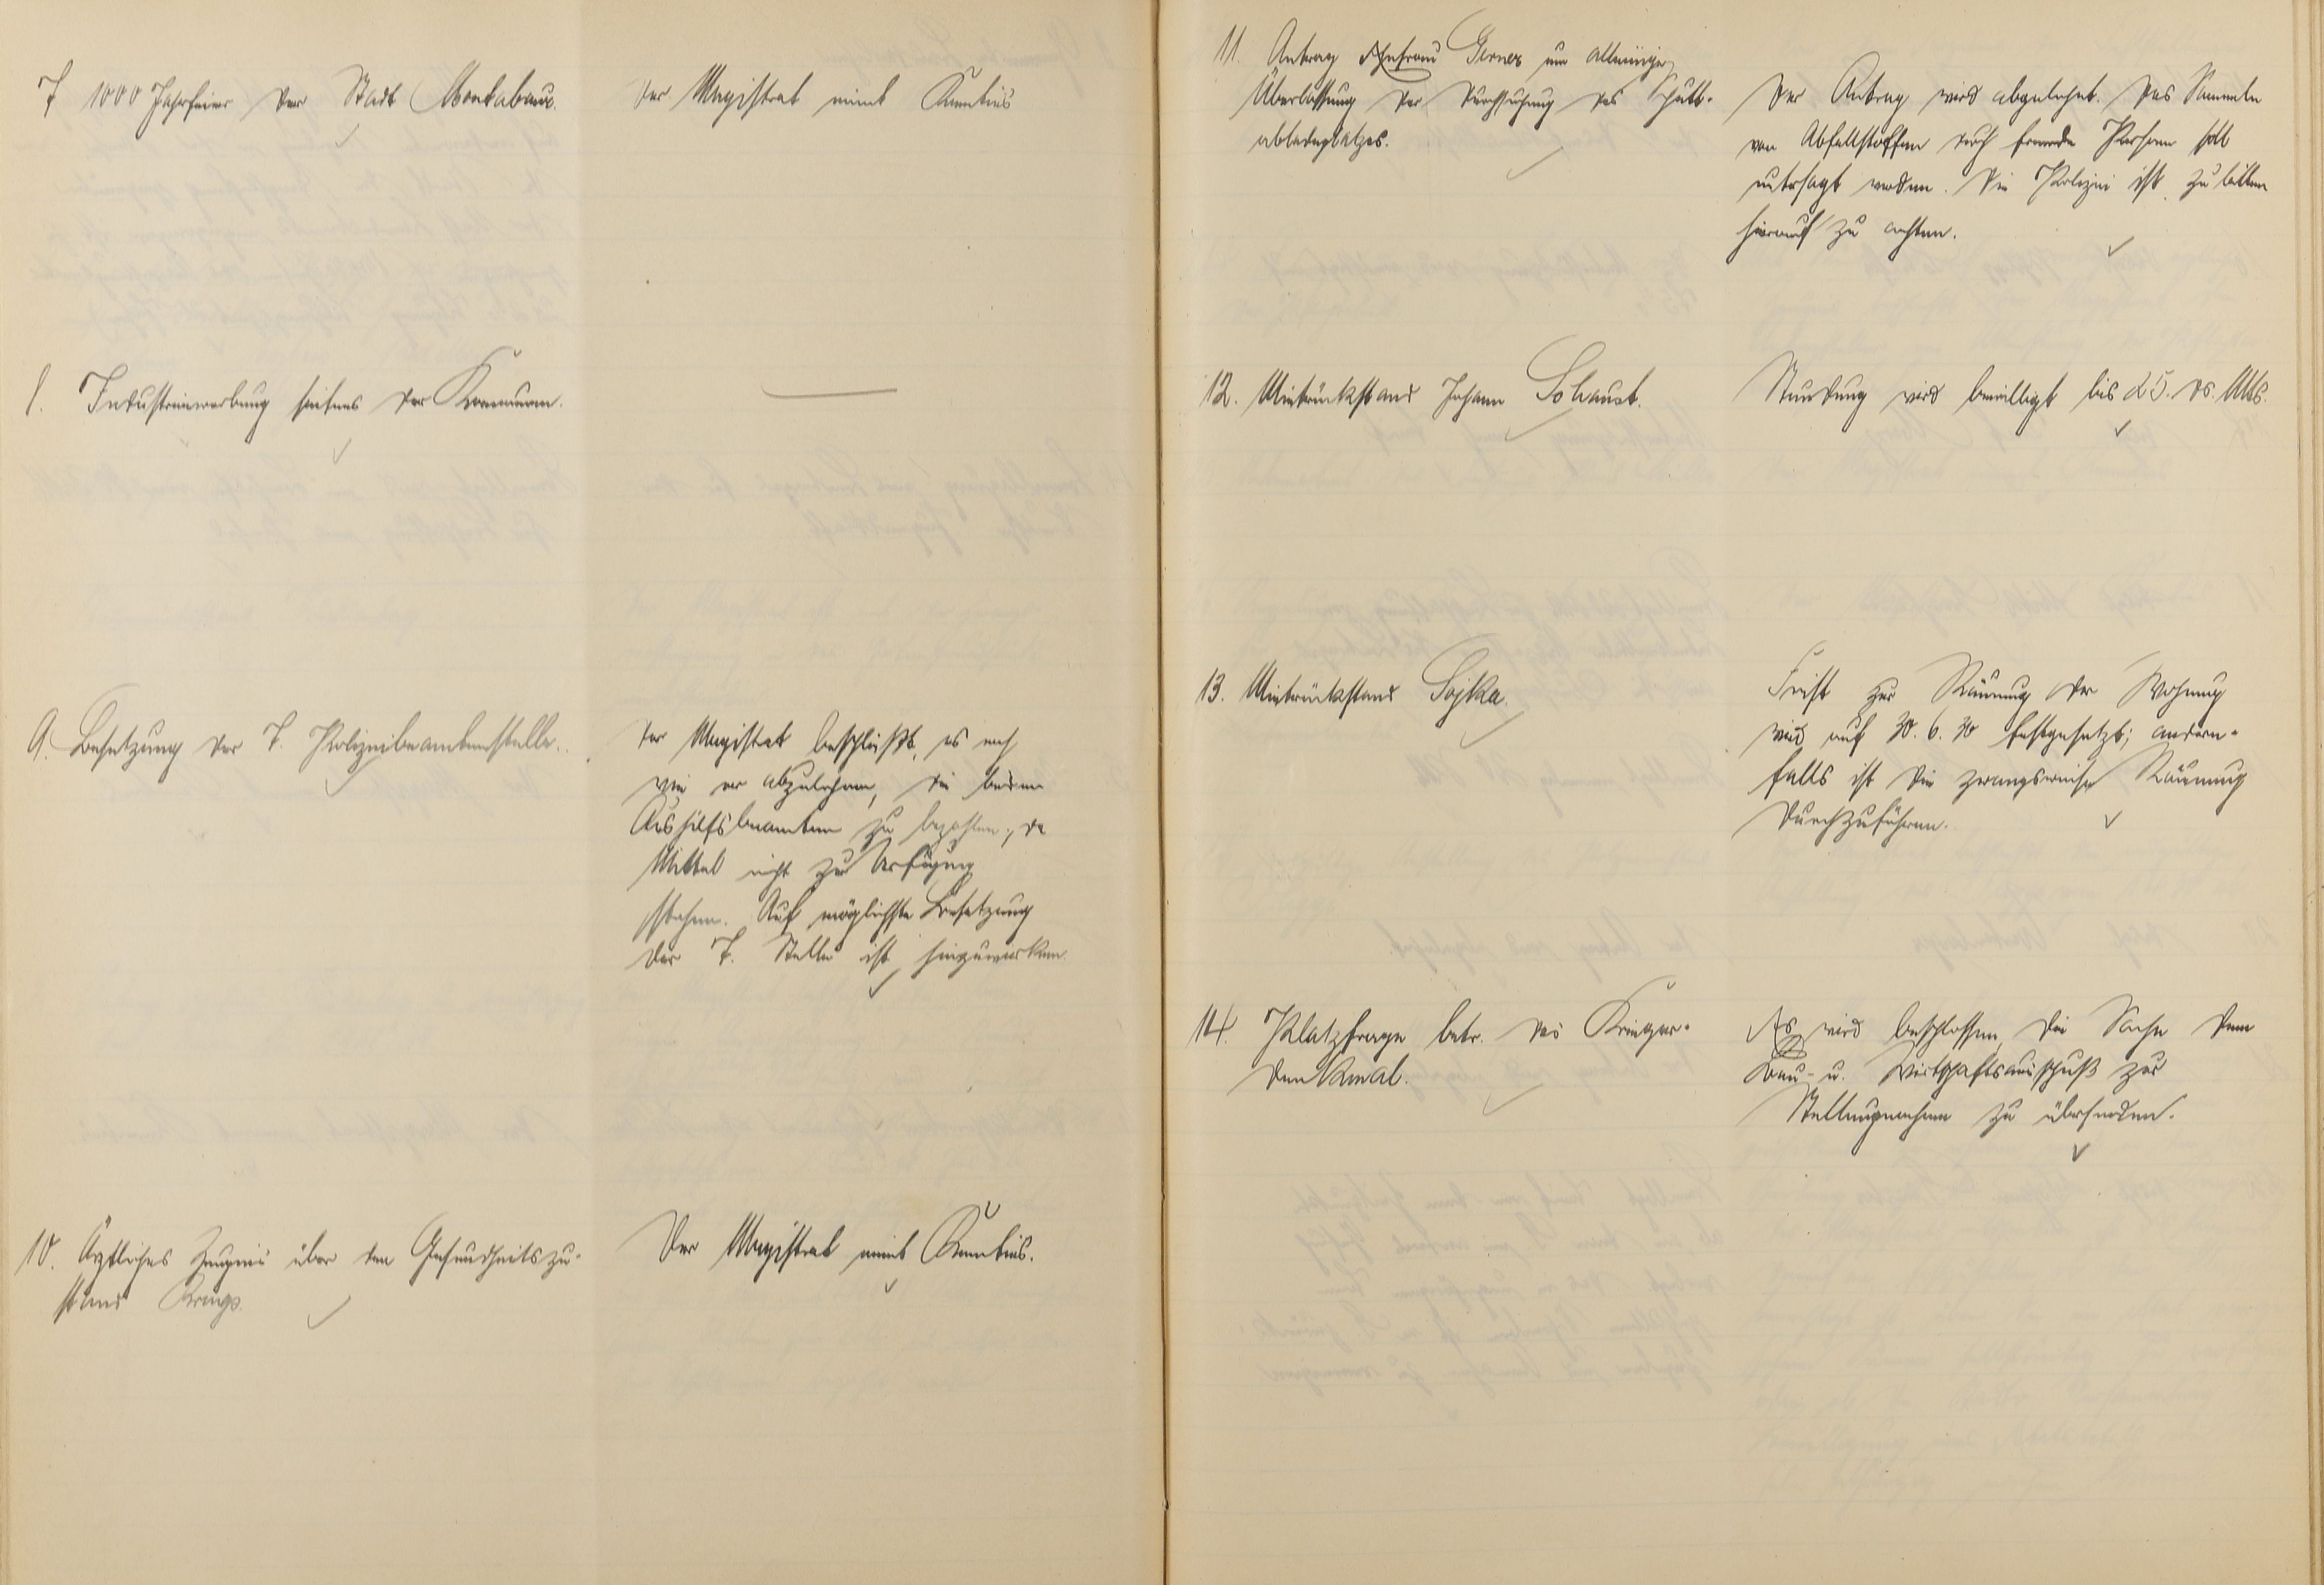 7 1000 Jahrfeier der Stadt Montabaur.
Der Magistrat nimmt Kenntnis
8. Industriewerbung seitens der Kommunen.
9. Besetzung der 7. Polizeibeamtenstelle.
Der Magistrat beschließt, es nach
wie vor abzulehnen, die beiden
Aushilfsbeamten zu bezahlen, da
Mittel nicht zur Verfügung
stehen. Auf möglichste Besetzung
der 7. Stelle ist hinzuwirken.
10. Ärztliches Zeugnis über den Gesundheitszu-
stand
Der Magistrat nimmt Kenntnis.
11. Antrag Ehefrau Gerner um alleinige
Überlassung der Durchsuchung des Schutt-
abladeplatzes.
Der Antrag wird abgelehnt. Das Sammeln
von Abfallstoffen durch fremde Personen soll
untersagt werden. Die Polizei ist zu bitten
hierauf zu achten.
12. Mietrückstand Johann Schaust.
Stundung wird bewilligt bis 25. ds. Mts.
13. Mietrückstand Sojka.
Frist zur Räumung der Wohnung
wird auf 30. 6. 30 festgesetzt; andern-
falls ist die zwangsweise Räumung
durchzuführen.
14. Platzfrage betr. des Krieger-
denkmal.
Es wird beschlossen, die Sache dem
Bau- u. Wirtschaftsausschuß zur
Stellungnahme zu übersenden.